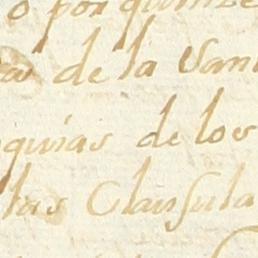 o por quinze
de la San
quias de los
las Clausula